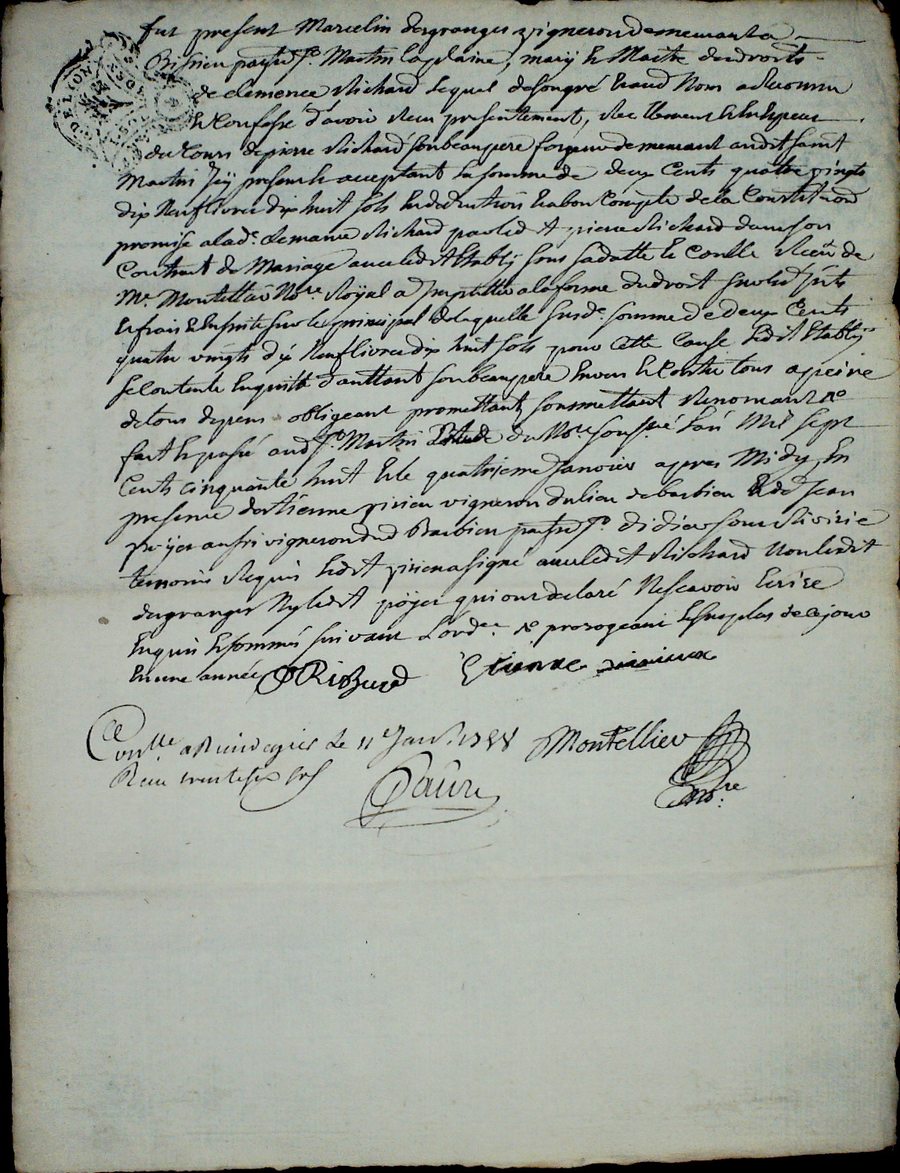 fut present Marcelin degranges vigneron demeurant a
Bissieu paroisse St. Martin Laplaine, mary & Maitre des droits
de clemence Richard lequel de son gré & aud Nom a Reconnu
& Confessé d'avoir Receu presentement, Reellement &
du Cours de pierre Richard son beaupere forgeur demeurant audit saint
Martin Icy present & acceptant la somme de deux Cents quatre vingts
dix Neuf livres dix huit sols En deduction & a bon Compte de la Constitution
promise a lad. clemance Richard par led. pierre Richard dans son
Contrat de Mariage avec led. Etably sous sa datte & Conlle Receu de
Me. Montellier Nore. Royal a Imputter a la forme du droit sur les Ints
& frais & Ensuite sur le principal de laquelle susd. somme de deux Cents
quatre vingts dix Neuf livres dix huit sols pour Cette Cause ledit Etably
se Contente En quitte d'auttant son beaupere Envers & Contre tous a peine
de tous depens obligeant promettant soumettant Renonçant &c
fait & passé aud. St. Martin Etude du Nore. soussigné L'an Mil sept
Cents cinquante huit & le quatrieme Janvier apres Midy, En
presence d'estienne vigneron du lieu de barbieu & de Jean
poyer aussi vigneron dud Barbieu paroisse St. didier sous Riverie
temoins Requis ledit a signé avec ledit Richard Non ledit
degranges Ny led. poyer qui ont declaré Ne scavoir Ecrire
Enquis & sommés suivant L'ordce. & prorogeant & de ce jour
En une année PRichard Etienne
Conlle a Rivedegier le 11e Janv. 1758 Montellier
Recu trente six sols
Faure Nore.